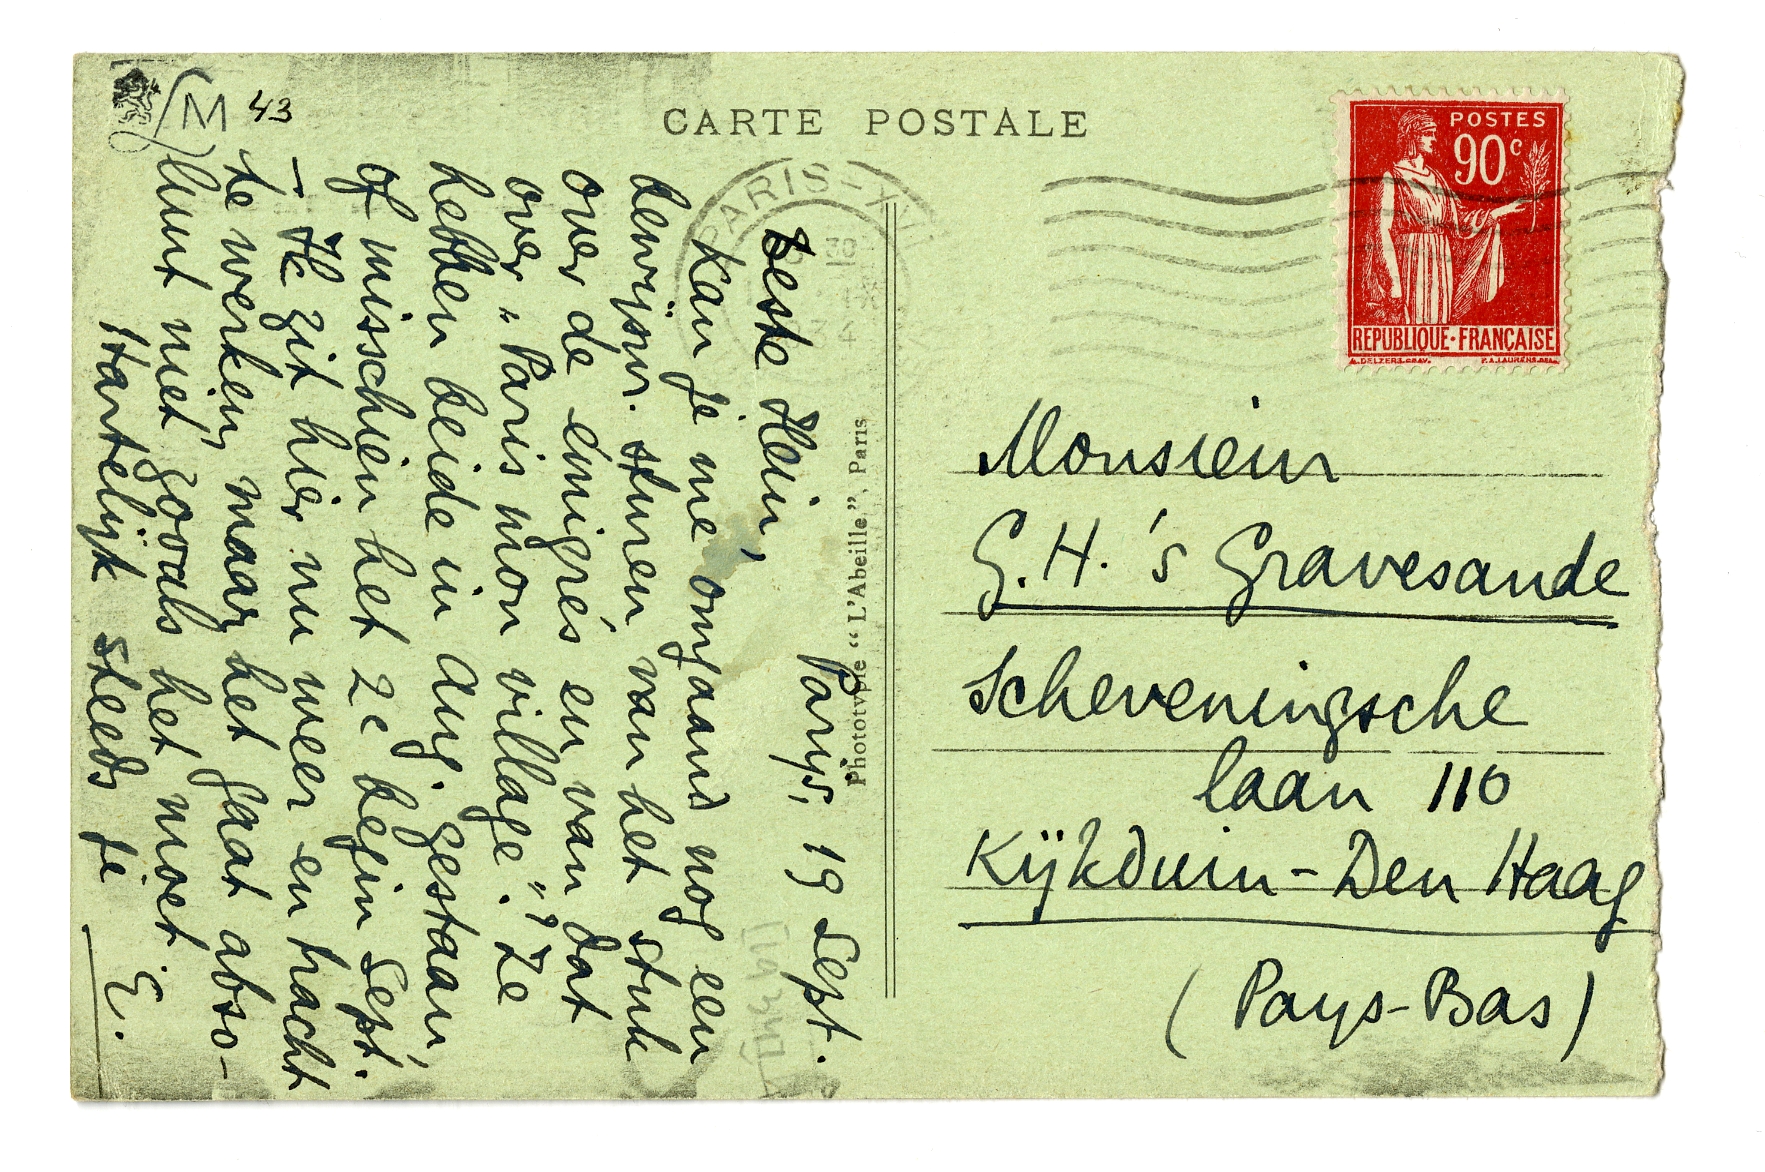 M 43
CARTE POSTALE
POSTES
90c
REPUBLIQUE·FRANÇAISE
PARIS-XVI
30
Phototypie “L'Abeille”, Paris
Parijs, 19 Sept.
[1934]
Beste Hein,
Kan je me omgaand nog een
bewijsnr. sturen van het stuk
over de émigrés en van dat
over „Paris mon village”? Ze
hebben beide in Aug. gestaan
of misschien het 2e begin Sept.
– Ik zit hier nu weer en tracht
te werken, maar het gaat abso-
luut niet zooals het moet.
Hartelijk steeds je
E.
Monsieur
G.H. 's Gravesande
Scheveningsche
laan 110
Kijkduin - Den Haag
(Pays-Bas)